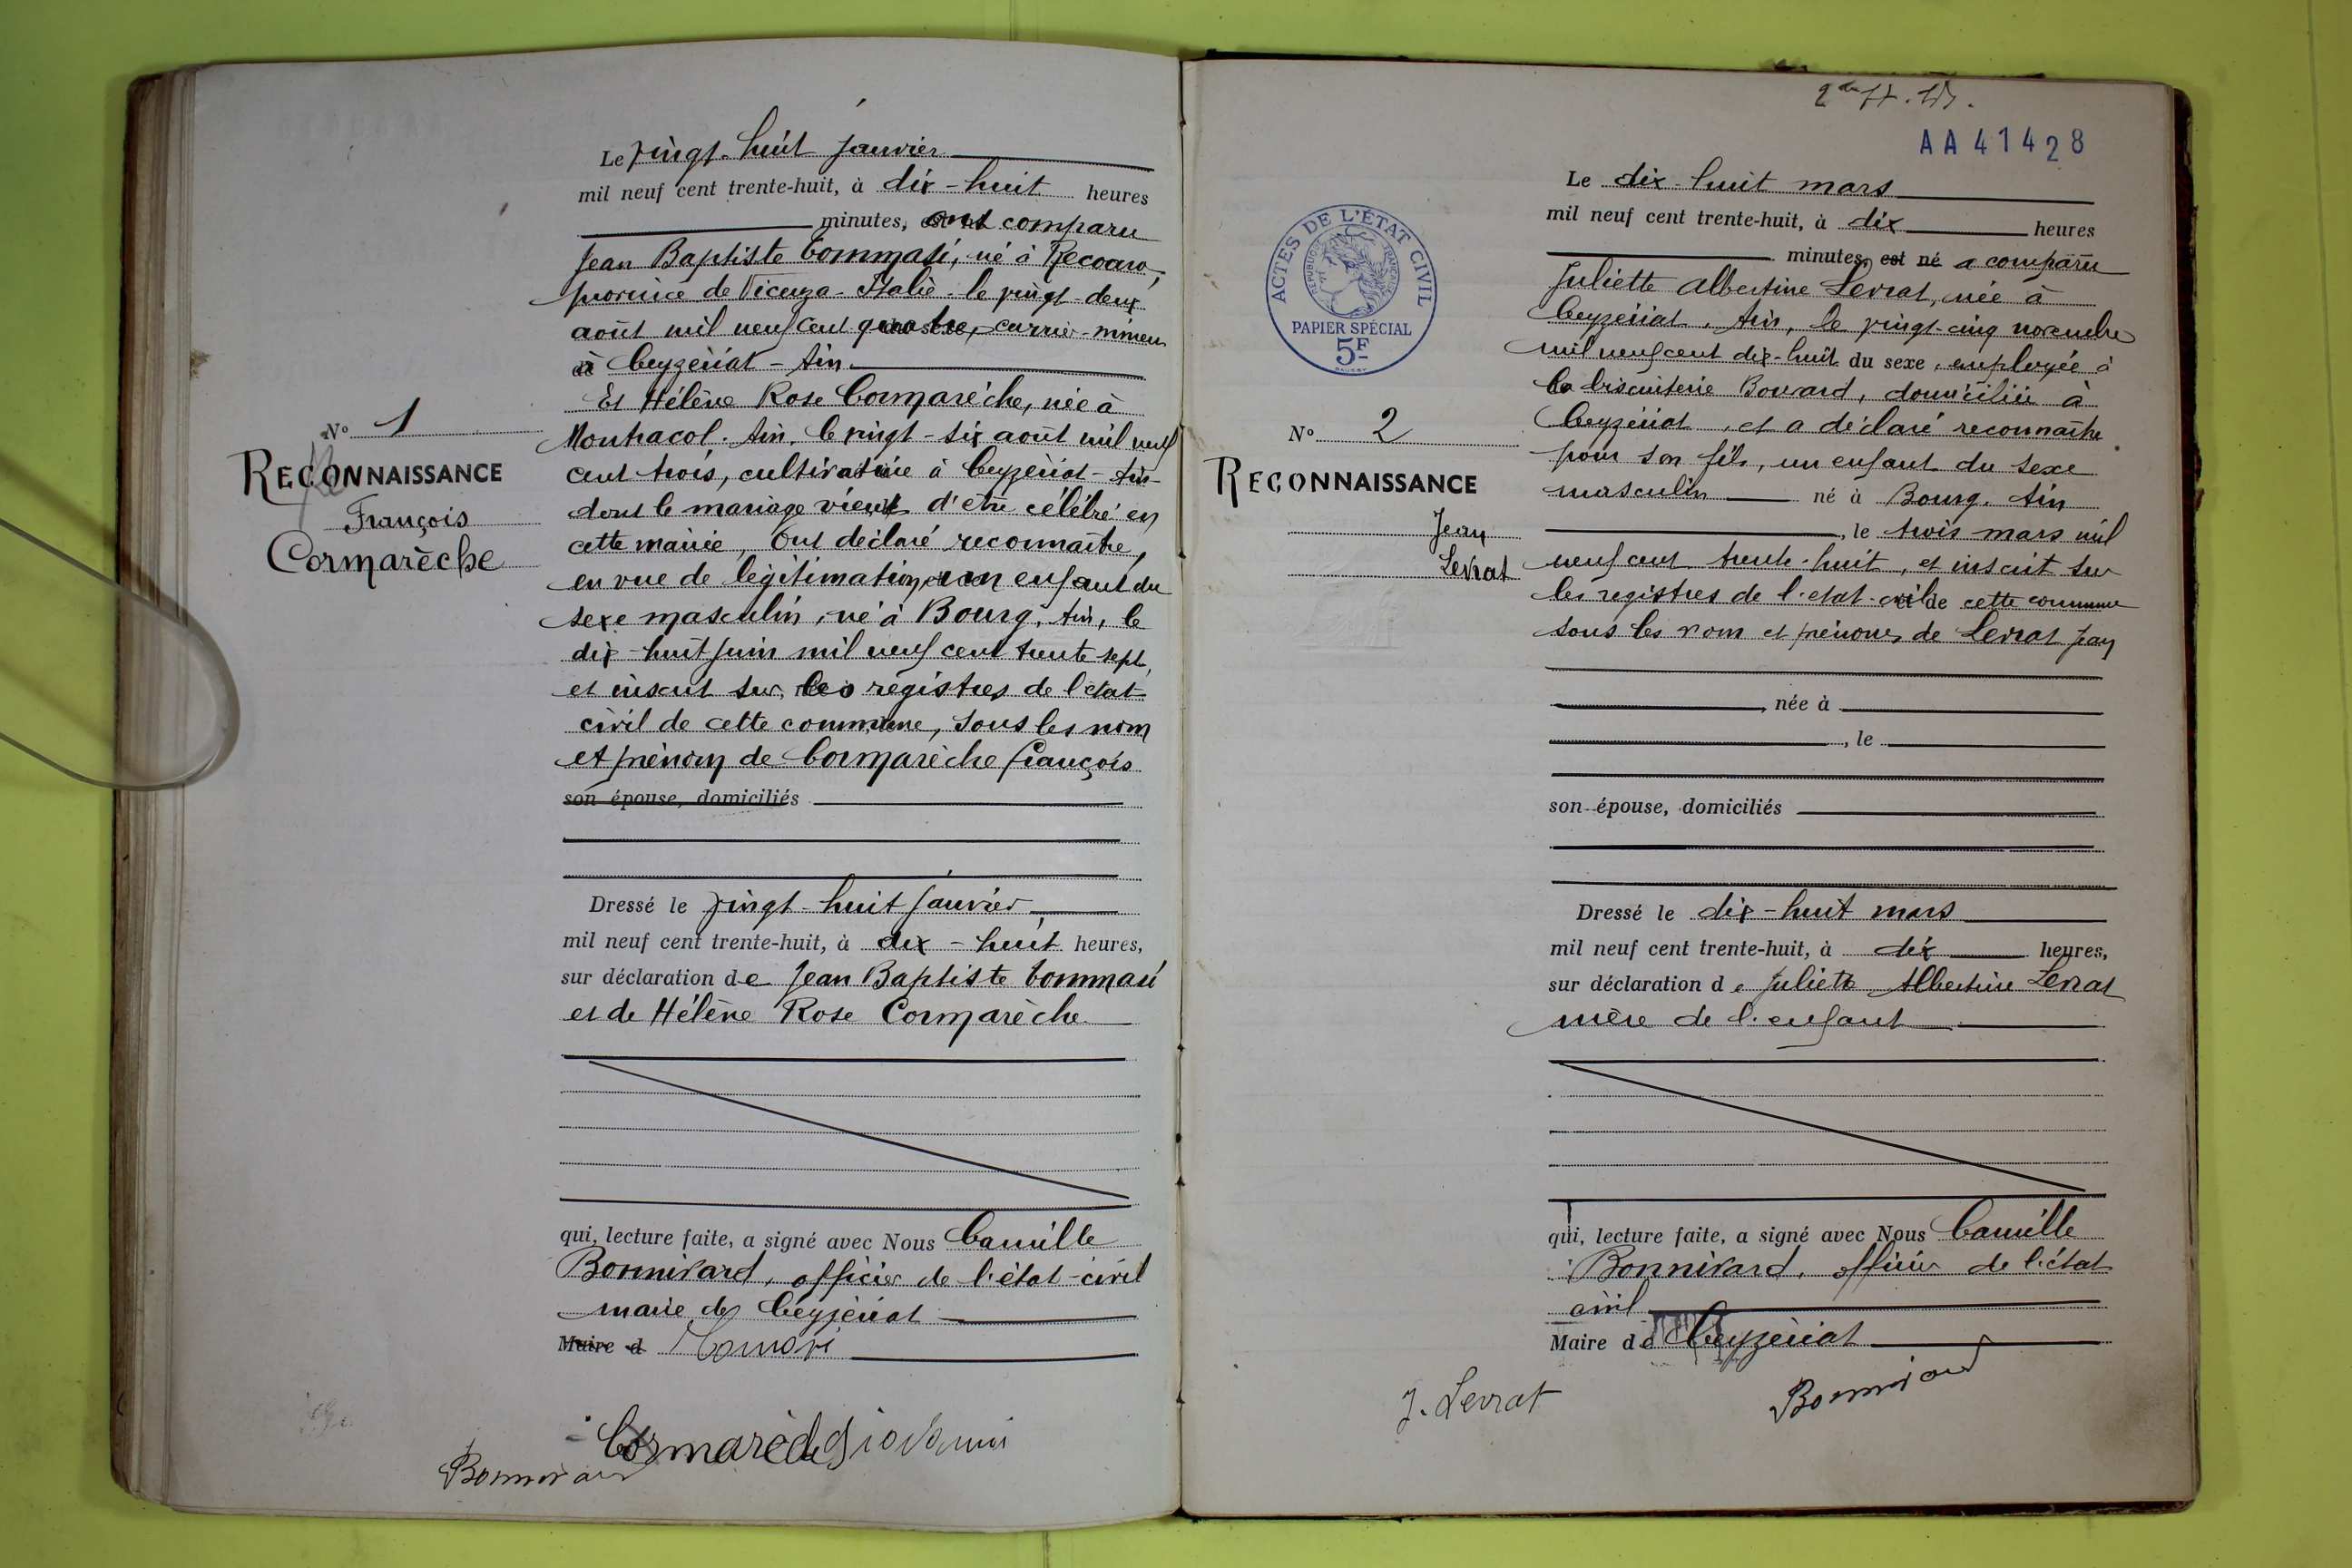 Le vingt-huit janvier
mil neuf cent trente-huit, à dix-huit heures
minutes, ont comparu
Jean Baptiste Tommasi, né à Recoaro,
province de Vicenza - Italie - le vingt-deux
août mil neuf cent quatre, carrier-mineur
à Ceyzériat - Ain
Et Hélène Rose Cormarèche, née à
Montracol. Ain. le vingt-six août mil neuf
cent trois, cultivatrice à Ceyzériat - Ain -
dont le mariage vient d'être célébré en
cette mairie, Ont déclaré reconnaître,
en vue de légitimation, un enfant du
sexe masculin, né à Bourg, Ain, le
dix-huit juin mil neuf cent trente sept,
et inscrit sur les registres de l'état-
civil de cette commune, sous les nom
et prénom de Cormarèche François
son épouse, domiciliés
N° 1
RECONNAISSANCE
François
Cormarèche
Dressé le vingt-huit janvier
mil neuf cent trente-huit, à dix-huit heures,
sur déclaration de Jean Baptiste Tommasi
et de Hélène Rose Cormarèche
qui, lecture faite, a signé avec Nous Camille
Bonnivard, officier de l'état-civil
maire de Ceyzériat
Maire d
Cormarèche Giovanni
Bonnivard
AA 41428
ACTES DE L'ÉTAT CIVIL
RÉPUBLIQUE FRANÇAISE
PAPIER SPÉCIAL
5F
N° 2
RECONNAISSANCE
Jean
Levrat
Le dix-huit mars
mil neuf cent trente-huit, à dix heures
minutes, est né a comparu
Juliette Albertine Levrat, née à
Ceyzériat, Ain, le vingt-cinq novembre
mil neuf cent dix-huit du sexe, employée à
la biscuiterie Bouvard, domiciliée à
Ceyzériat, et a déclaré reconnaître
pour son fils, un enfant du sexe
masculin né à Bourg. Ain
, le trois mars mil
neuf cent trente-huit, et inscrit sur
les registres de l'état-civil de cette commune
sous les nom et prénoms de Levrat Jean
, née à
, le
son épouse, domiciliés
Dressé le dix-huit mars
mil neuf cent trente-huit, à dix heures,
sur déclaration de Juliette Albertine Levrat
mère de l'enfant
qui, lecture faite, a signé avec Nous Camille
Bonnivard, officier de l'état
civil
Maire de Ceyzériat
J. Levrat
Bonnivard